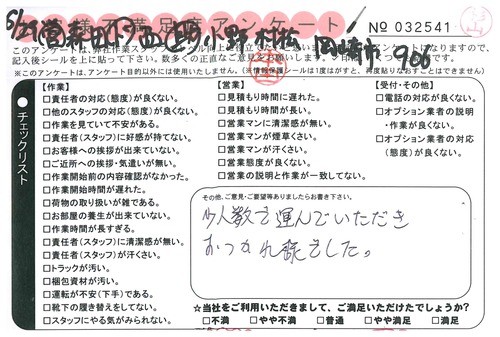 お客様不満足度アンケート
No 032541
このアンケートは、弊社作業スタッフ
記入後シールを上に貼って下さい。
※このアンケートは、アンケート目的以外には使用いたしません。(※情報保護シールは1度はがすと、再度貼りなおすことはできません)
チェックリスト
【作業】
□責任者の対応(態度)が良くない。
□他のスタッフの対応(態度)が良くない。
□作業を見ていて不安がある。
□責任者(スタッフ)に好感が持てない。
□お客様への挨拶が出来ていない。
□ご近所への挨拶・気遣いが無い。
□作業開始前の内容確認がなかった。
□作業開始時間が遅れた。
□荷物の取り扱いが雑である。
□お部屋の養生が出来ていない。
□作業時間が長すぎる。
□責任者(スタッフ)に清潔感が無い。
□責任者(スタッフ)が汗くさい。
□トラックが汚い。
□梱包資材が汚い。
□運転が不安(下手)である。
□靴下の履き替えをしてない。
□スタッフにやる気がみられない。
【営業】
□見積もり時間に遅れた。
□見積もり時間が長い。
□営業マンに清潔感が無い。
□営業マンが煙草くさい。
□営業マンが汗くさい。
□営業態度が良くない。
□営業の説明と作業が一致してない。
【受付・その他】
□電話の対応が良くない。
□オプション業者の説明
・作業が良くない。
□オプション業者の対応
(態度)が良くない。
その他、ご意見・ご要望等ありましたらお書き下さい。
少人数で運んでいただき
おつかれ様でした。
☆当社をご利用いただきまして、ご満足いただけたでしょうか?
□不満 □やや不満 □普通 □やや満足 □満足